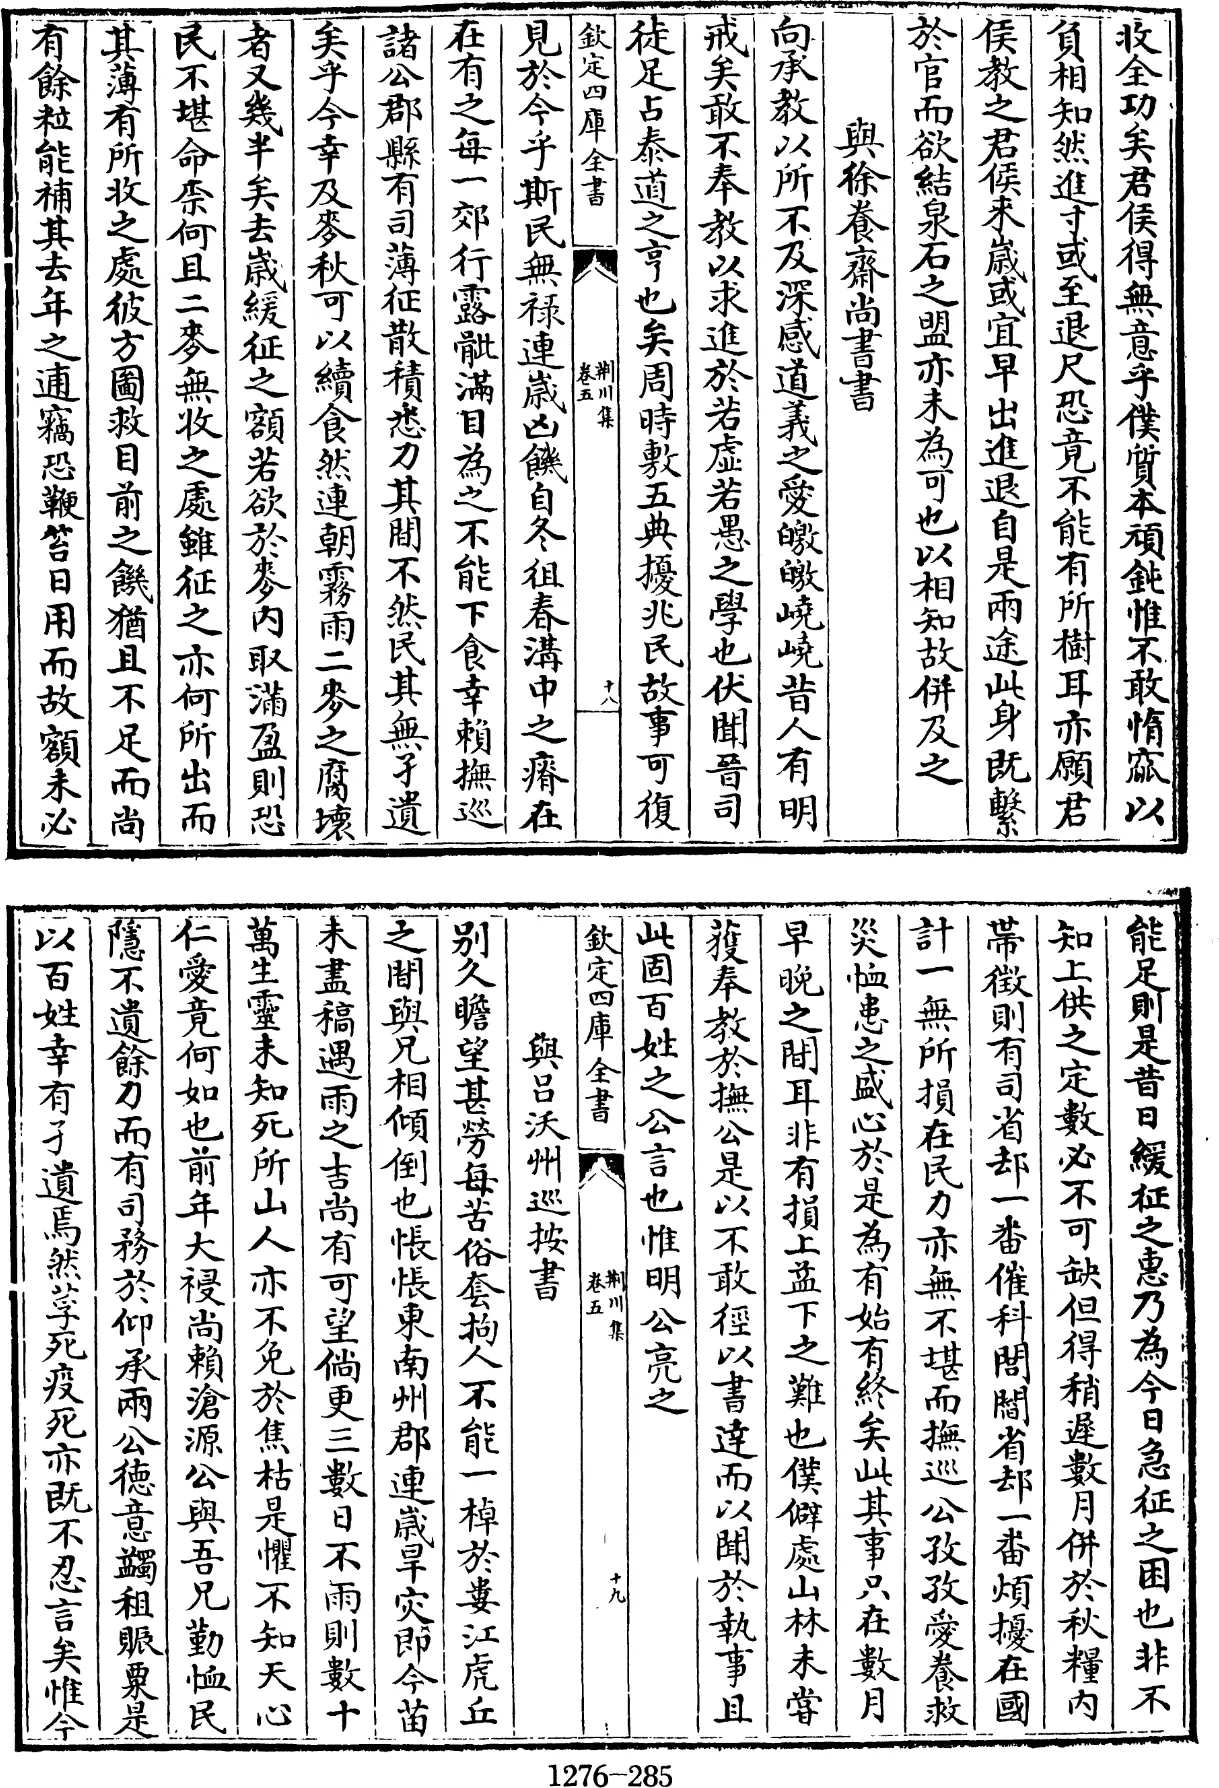 收全功矣君侯得無意乎僕質本頑鈍惟不敢惰窳以
負相知然進寸或至退尺恐竟不能有所樹耳亦願君
侯教之君侯來嵗或宜早出進退自是兩途此身既繫
於官而欲結泉石之盟亦未為可也以相知故併及之
與徐養齋尚書書
向承教以所不及深感道義之愛皦皦嶢嶢昔人有明
戒矣敢不奉教以求進於若虛若愚之學也伏聞晉司
徒足占泰道之亨也矣周時敷五典擾兆民故事可復
欽定四庫全書
荆川集
卷五
十八
見於今乎斯民無祿連嵗凶饑自冬徂春溝中之瘠在
在有之每一郊行露骴滿目為之不能下食幸賴撫巡
諸公郡縣有司薄征散積悉力其間不然民其無孑遺
矣乎今幸及麥秋可以續食然連朝霧雨二麥之腐壞
者又幾半矣去嵗緩征之額若欲於麥内取滿盈則恐
民不堪命柰何且二麥無收之處雖征之亦何所出而
其薄有所收之處彼方圖救目前之饑猶且不足而尚
有餘粒能補其去年之逋竊恐鞭笞日用而故額未必
能足則是昔日緩征之惠乃為今日急征之困也非不
知上供之定數必不可缺但得稍遲數月併於秋糧内
帶徴則有司省却一番催科閭閻省却一番煩擾在國
計一無所損在民力亦無不堪而撫巡公孜孜愛養救
災恤患之盛心於是為有始有終矣此其事只在數月
早晚之間耳非有損上益下之難也僕僻處山林未嘗
獲奉教於撫公是以不敢徑以書達而以聞於執事且
此固百姓之公言也惟明公亮之
欽定四庫全書
荆川集
卷五
十九
與吕沃州巡按書
别久瞻望甚勞每苦俗套拘人不能一棹於婁江虎丘
之間與兄相傾倒也悵悵東南州郡連嵗旱灾即今苗
未盡稿遇雨之吉尚有可望倘更三數日不雨則數十
萬生靈未知死所山人亦不免於焦枯是懼不知天心
仁愛竟何如也前年大祲尚賴滄源公與吾兄勤恤民
隱不遺餘力而有司務於仰承兩公德意蠲租賑粟是
以百姓幸有孑遺焉然莩死疫死亦既不忍言矣惟今
1276-285